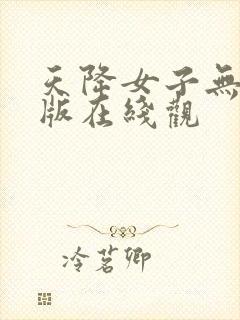 天降女子無
版在綫觀
冷茗卿